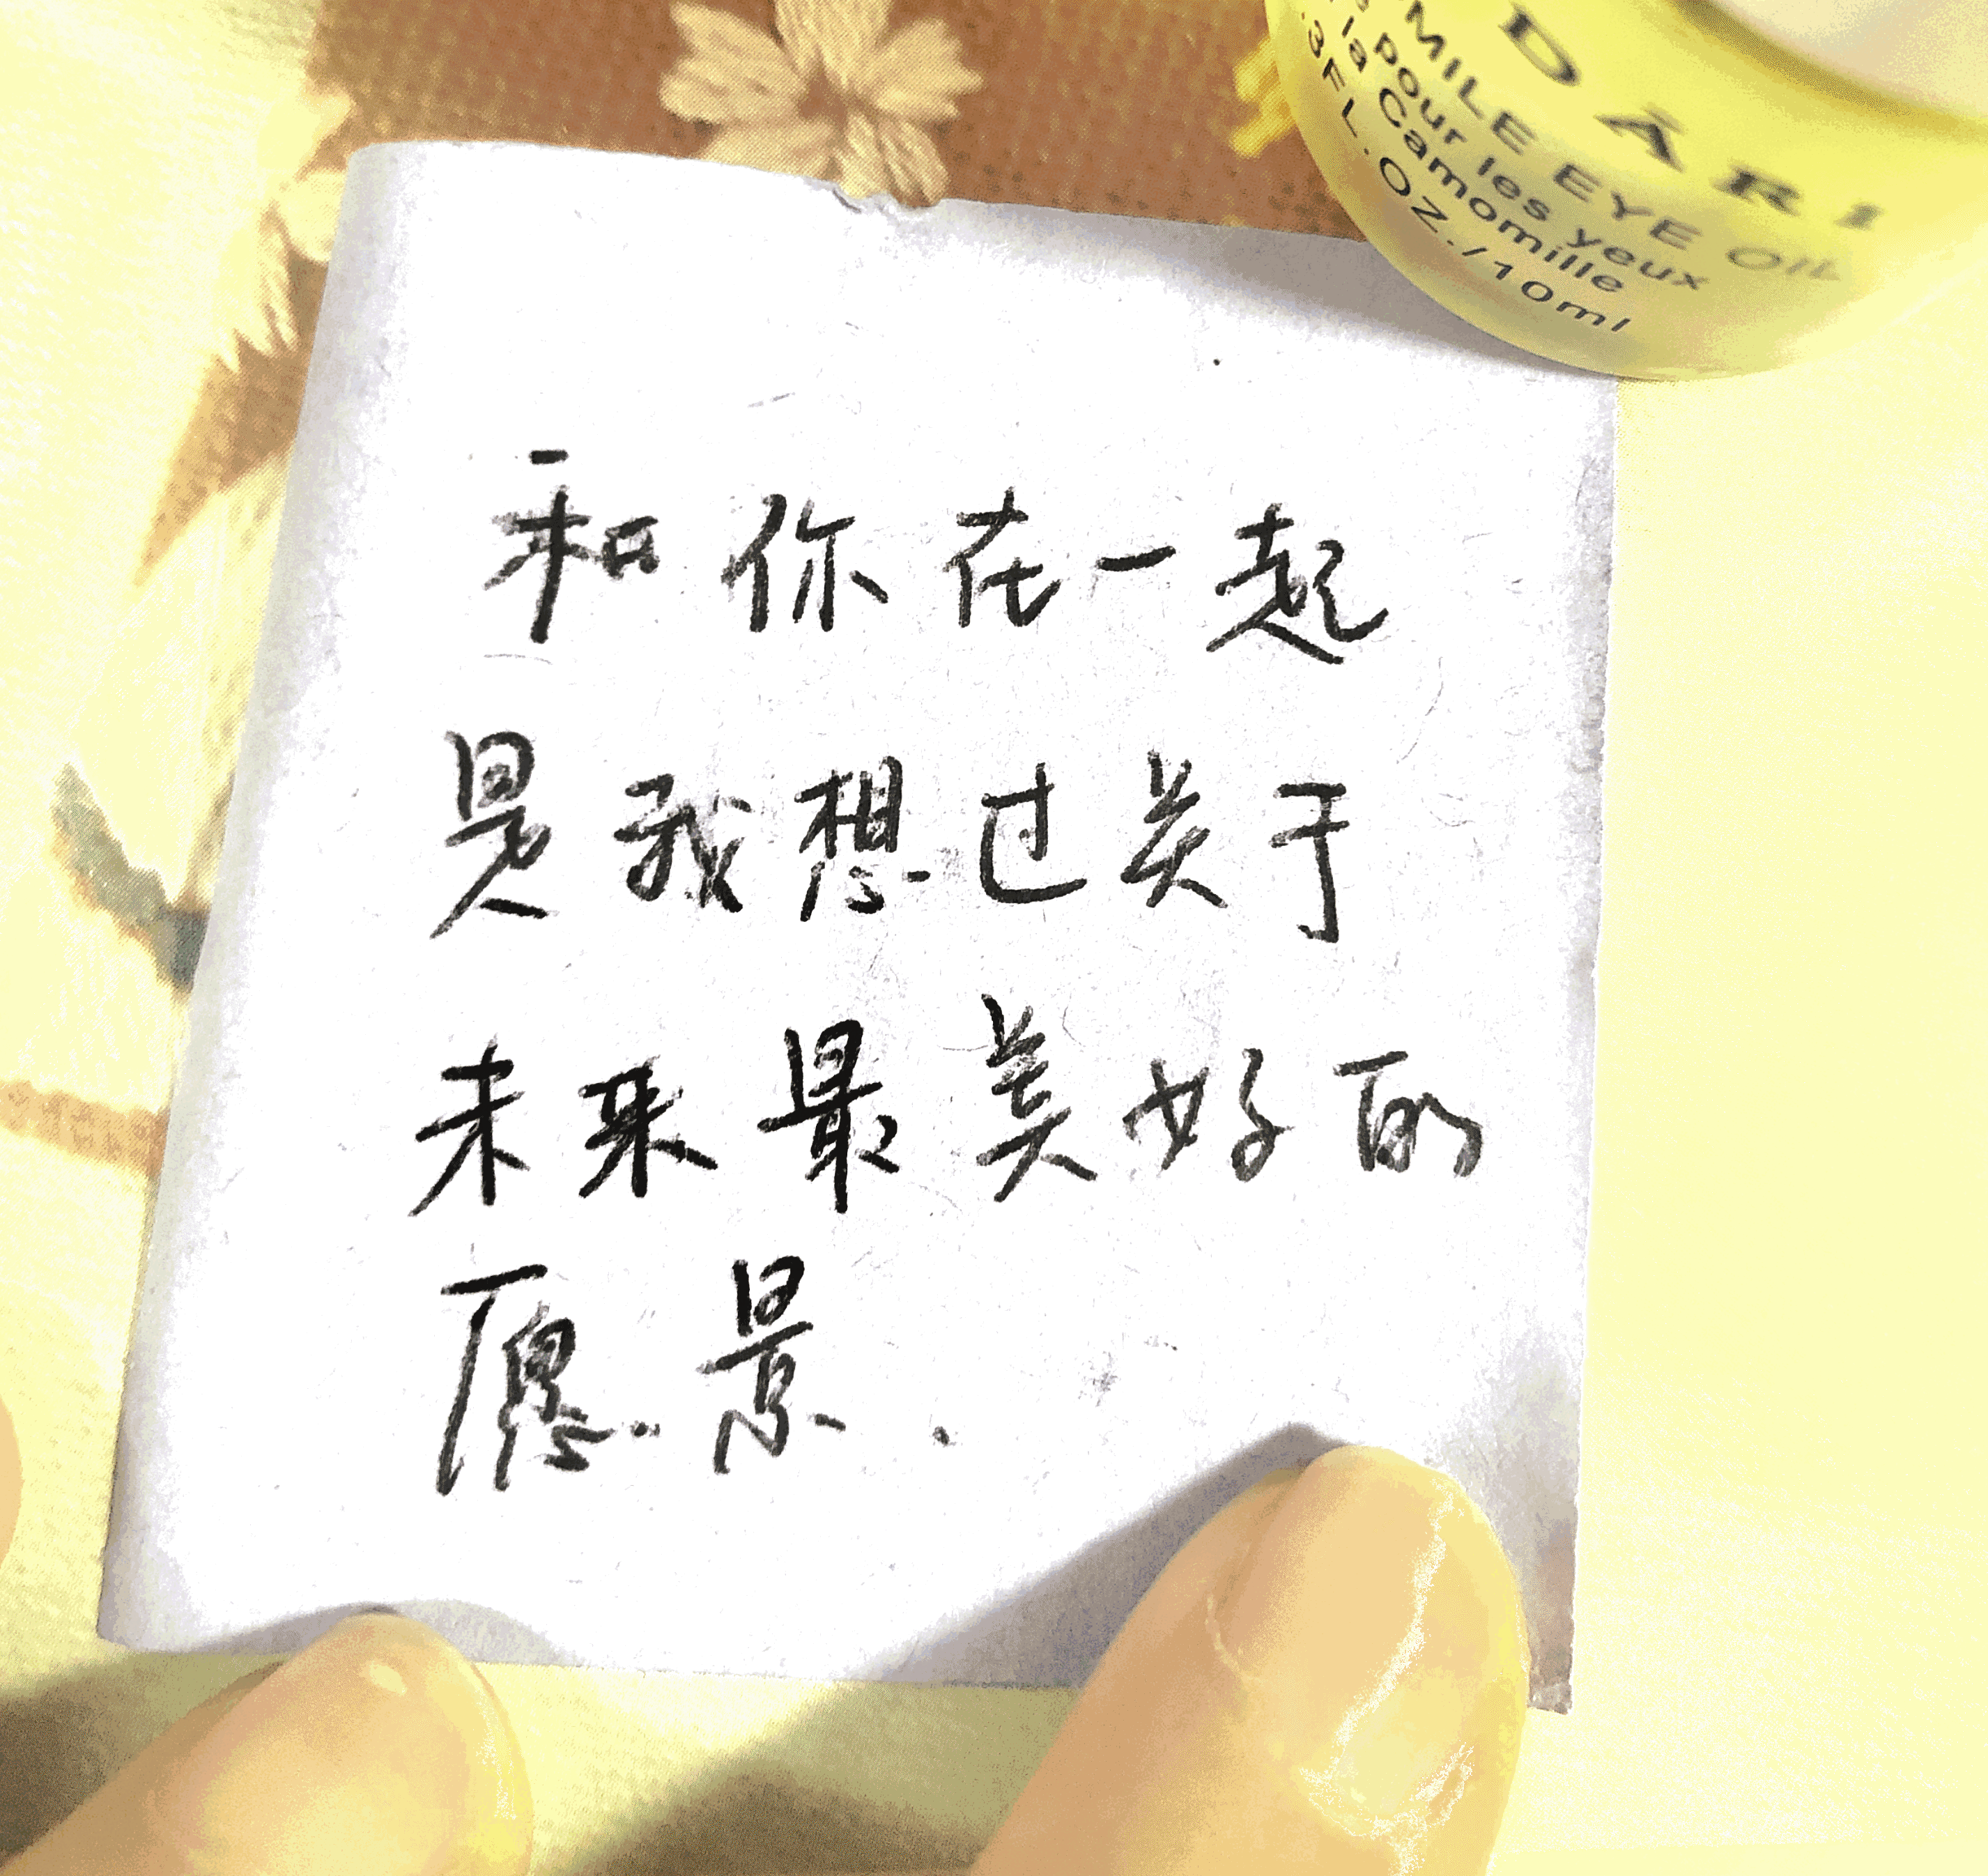 DĀRI
MILE EYE OIL
pour les yeux
la Camomille
3FL.OZ./10ml
和你在一起
是我想过关于
未来最美好的
愿景.